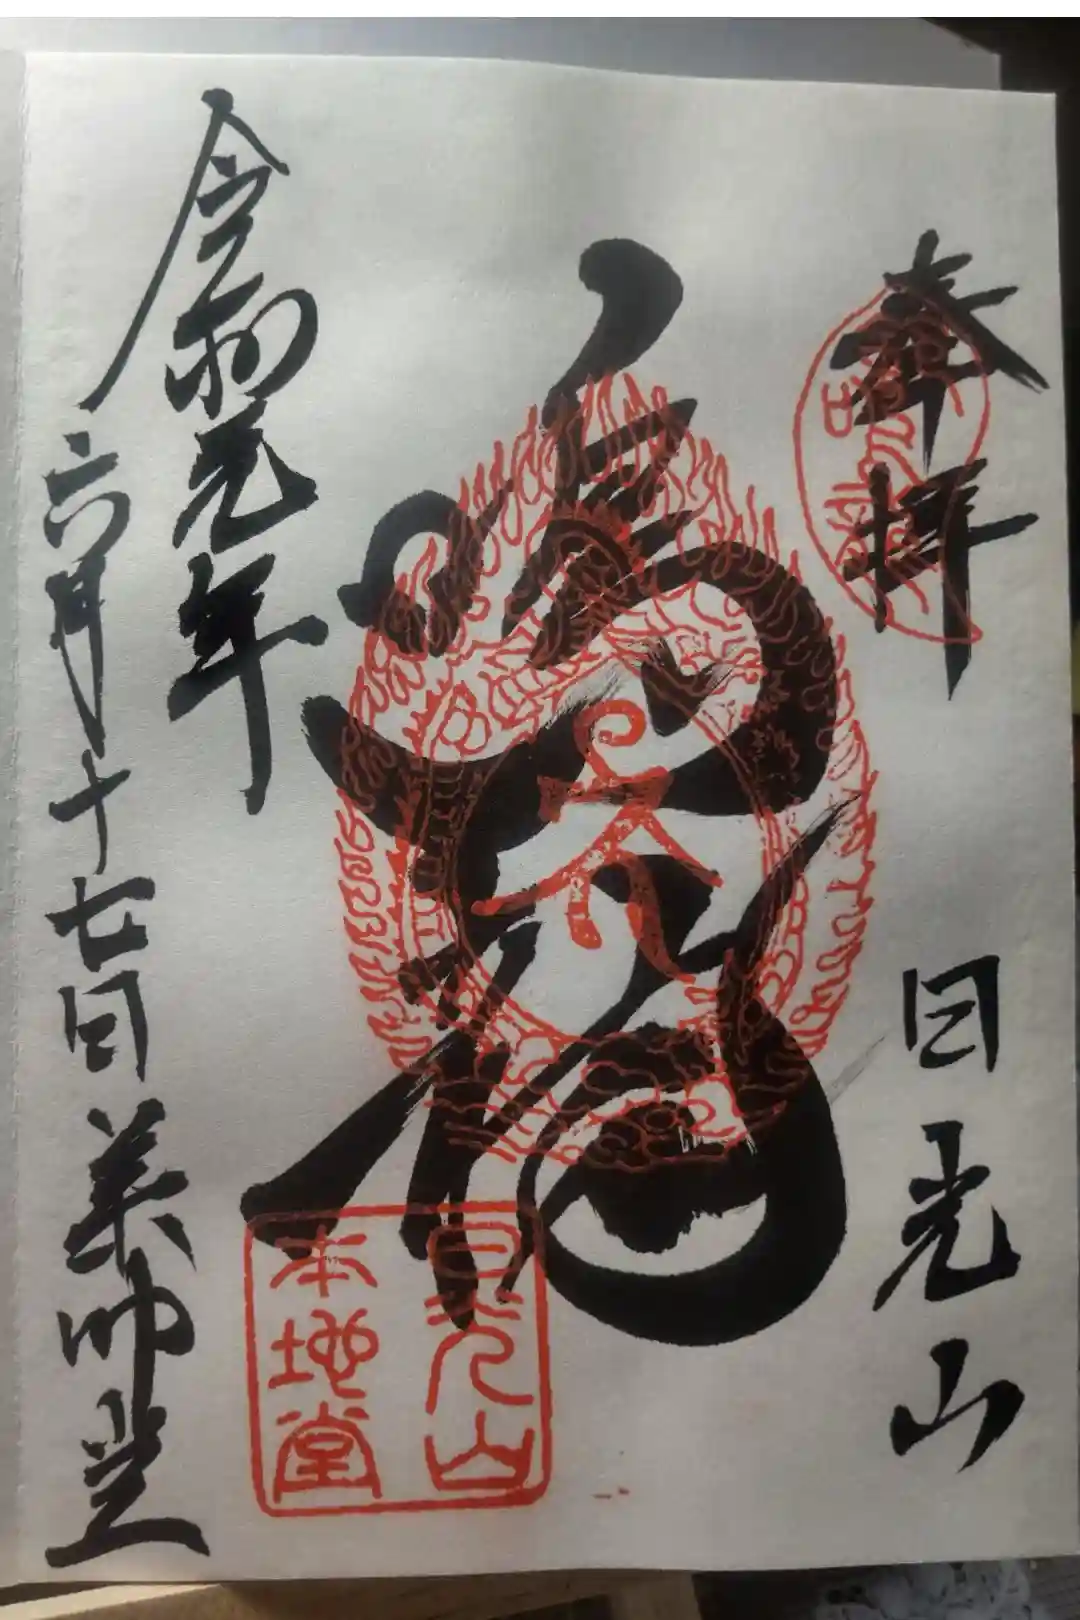 奉拝
日光山
鳴龍
日光山
本地堂
令和元年
六月十七日 薬師堂